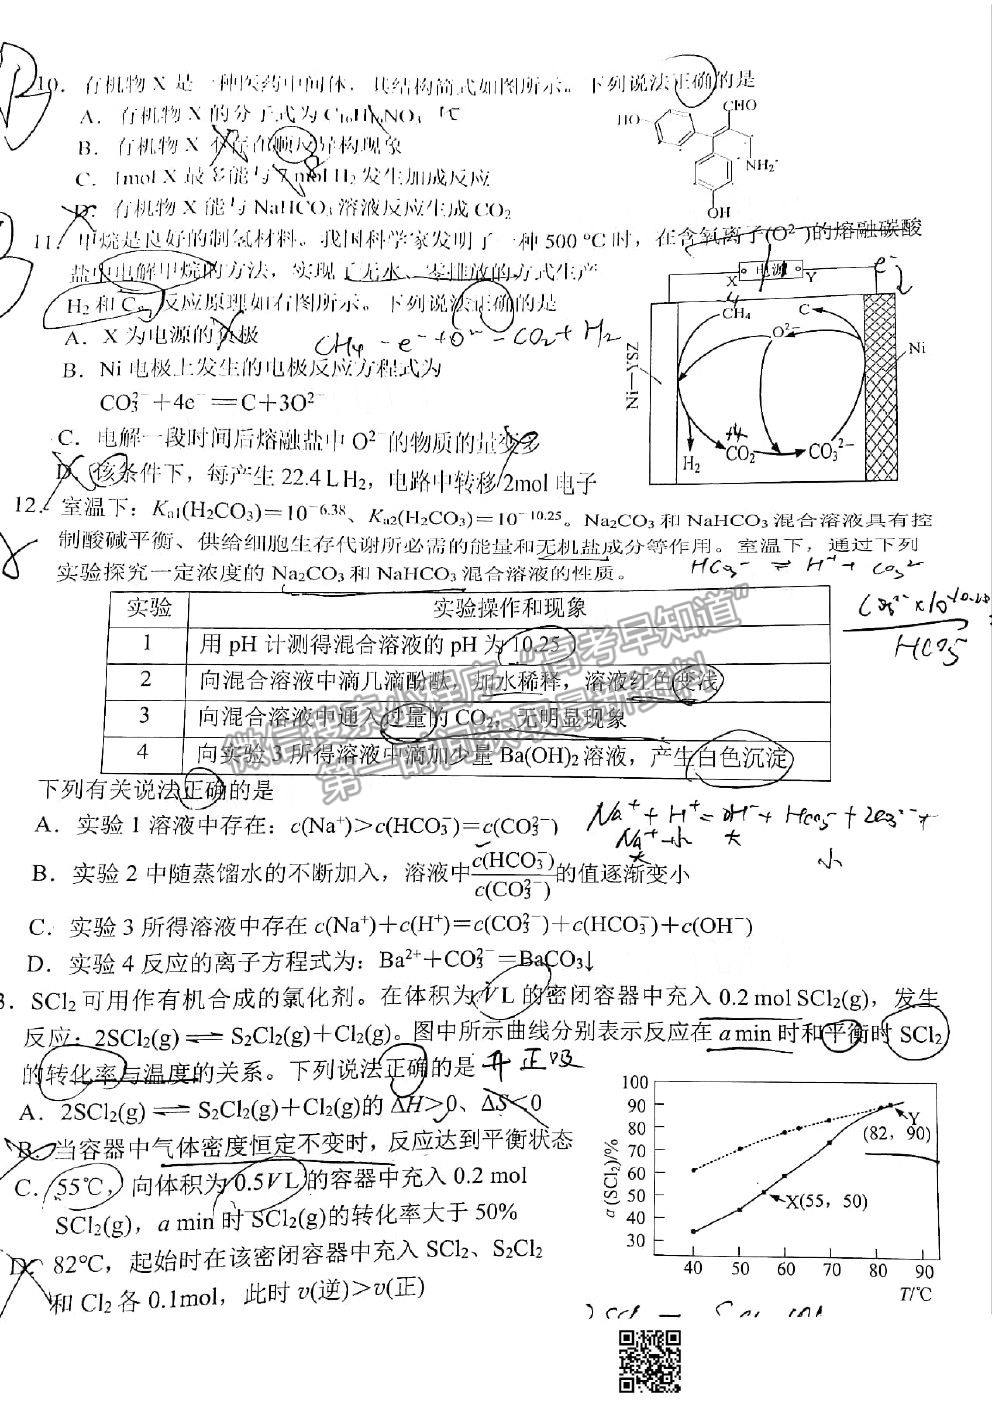 10. 有机物 X 是一种医药中间体，其结构简式如图所示。下列说法正确的是
A. 有机物 X 的分子式为
B. 有机物 X 不存在顺反异构现象
C. 1mol X 最多能与 7 mol H₂ 发生加成反应
D. 有机物 X 能与 NaHCO₃ 溶液反应生成 CO₂
HO
CHO
NH₂
OH
11. 甲烷是良好的制氢材料。我国科学家发明了一种 500 °C 时，在含氧离子(O²⁻)的熔融碳酸
盐中电解甲烷的方法，实现了无水、零排放的方式生产
H₂ 和 C。反应原理如右图所示。下列说法正确的是
A. X 为电源的负极
CH₄ - e⁻ + O²⁻ = CO₂ + H₂
B. Ni 电极上发生的电极反应方程式为
CO₃²⁻+4e⁻=C+3O²⁻
C. 电解一段时间后熔融盐中 O²⁻的物质的量变多
D. 该条件下，每产生 22.4 L H₂，电路中转移 2mol 电子
X 电源 Y
e⁻
CH₄
C
O²⁻
Ni
Ni—YSZ
H₂
CO₂
CO₃²⁻
12. 室温下：Ka1(H₂CO₃)=10⁻⁶·³⁸、Ka2(H₂CO₃)=10⁻¹⁰·²⁵。Na₂CO₃ 和 NaHCO₃ 混合溶液具有控
制酸碱平衡、供给细胞生存代谢所必需的能量和无机盐成分等作用。室温下，通过下列
实验探究一定浓度的 Na₂CO₃ 和 NaHCO₃ 混合溶液的性质。
HCO₃⁻ ⇌ H⁺ + CO₃²⁻
实验 实验操作和现象
1 用 pH 计测得混合溶液的 pH 为 10.25
2 向混合溶液中滴几滴酚酞，加水稀释，溶液红色变浅
3 向混合溶液中通入过量的 CO₂，无明显现象
4 向实验 3 所得溶液中滴加少量 Ba(OH)₂ 溶液，产生白色沉淀
HCO₃⁻
微信搜索小程序"高考早知道"
第一时间获取最新资料
下列有关说法正确的是
A. 实验 1 溶液中存在：c(Na⁺)>c(HCO₃⁻)=c(CO₃²⁻)
Na⁺ + H⁺ = OH⁻ + HCO₃⁻ + 2CO₃²⁻
B. 实验 2 中随蒸馏水的不断加入，溶液中c(HCO₃⁻)/c(CO₃²⁻)的值逐渐变小
C. 实验 3 所得溶液中存在 c(Na⁺)+c(H⁺)=c(CO₃²⁻)+c(HCO₃⁻)+c(OH⁻)
D. 实验 4 反应的离子方程式为：Ba²⁺+CO₃²⁻=BaCO₃↓
3. SCl₂ 可用作有机合成的氯化剂。在体积为 V L 的密闭容器中充入 0.2 mol SCl₂(g)，发生
反应：2SCl₂(g)⇌S₂Cl₂(g)+Cl₂(g)。图中所示曲线分别表示反应在 a min 时和平衡时 SCl₂
的转化率与温度的关系。下列说法正确的是 升 正 吸
A. 2SCl₂(g)⇌S₂Cl₂(g)+Cl₂(g)的 ΔH>0、ΔS<0
B. 当容器中气体密度恒定不变时，反应达到平衡状态
C. 55℃，向体积为 0.5V L 的容器中充入 0.2 mol
SCl₂(g)，a min 时 SCl₂(g)的转化率大于 50%
D. 82℃，起始时在该密闭容器中充入 SCl₂、S₂Cl₂
和 Cl₂ 各 0.1mol，此时 v(逆)>v(正)
α(SCl₂)/%
100
90
80
70
60
50
40
30
Y
(82，90)
X(55，50)
40 50 60 70 80 90
T/℃